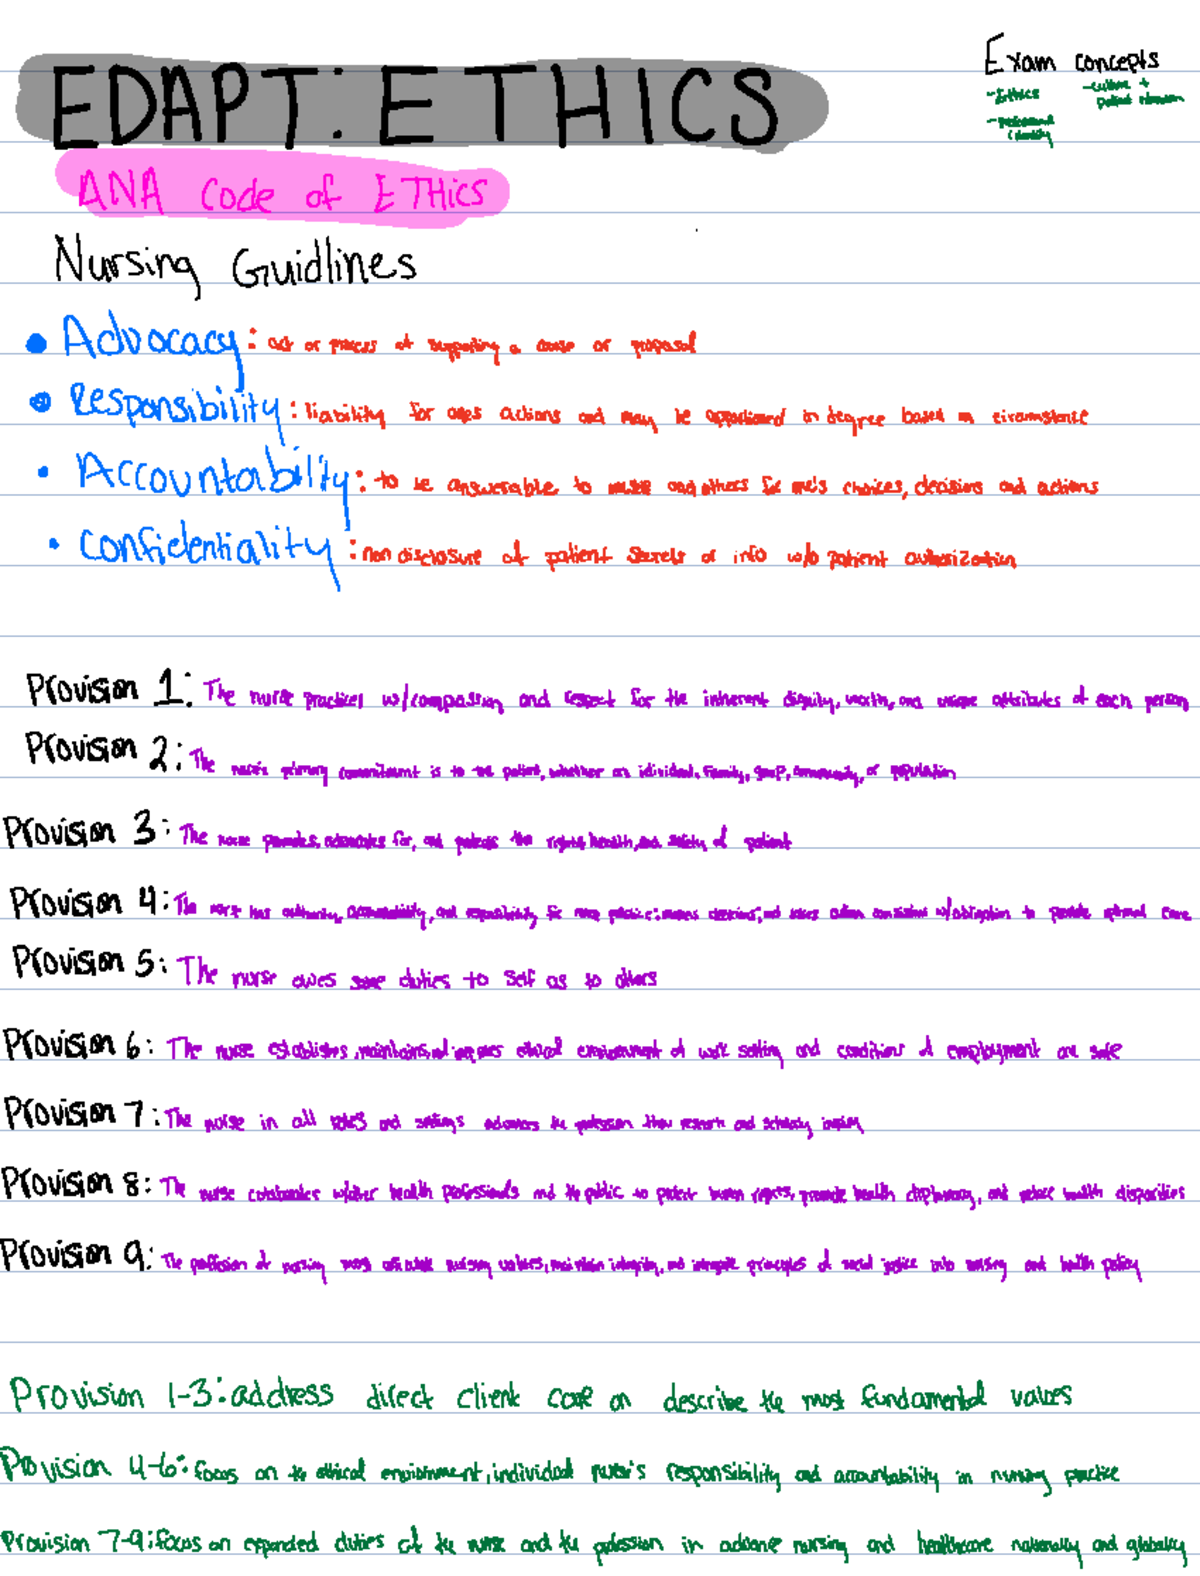 EDAPT: ETHICS
Exam concepts
- Ethics
- culture +
patient
- professional
identity
ANA Code of ETHics
Nursing Guidlines
• Advocacy: act or process of supporting a cause or proposal
• Responsibility: liability for ones actions and may be apportioned in degree based on circumstance
• Accountability: to be answerable to and others for one's choices, decisions and actions
• Confidentiality: non disclosure of patient secrets or info w/o patient authorization
Provision 1: The nurse practices w/compassion and respect for the inherent dignity, worth, and unique attributes of each person
Provision 2: The nurse's primary commitment is to the patient, whether an individual, family, group, community, or population
Provision 3: The nurse promotes, advocates for, and protects the rights, health, and safety of patient
Provision 4: The nurse has authority, accountability, and responsibility for practice: makes decisions; and takes action consistent w/obligation to provide optimal care
Provision 5: The nurse owes same duties to self as to others
Provision 6: The nurse establishes, maintains, and improves ethical environment of work setting and conditions of employment are safe
Provision 7: The nurse in all roles and settings advances the profession thru research and scholarly inquiry
Provision 8: The nurse collaborates w/other health professionals and the public to protect human rights, promote health diplomacy, and reduce health disparities
Provision 9: The proffesion of nursing must articulate nursing values, maintain integrity, and integrate principles of social justice into nursing and health policy
Provision 1-3: address direct client care on describe the most fundamental values
Provision 4-6: focus on the ethical enviornment, individual nurse's responsibility and accountability in nursing practice
Provision 7-9: focus on expanded duties of the nurse and the profession in advance nursing and healthcare nationally and globally